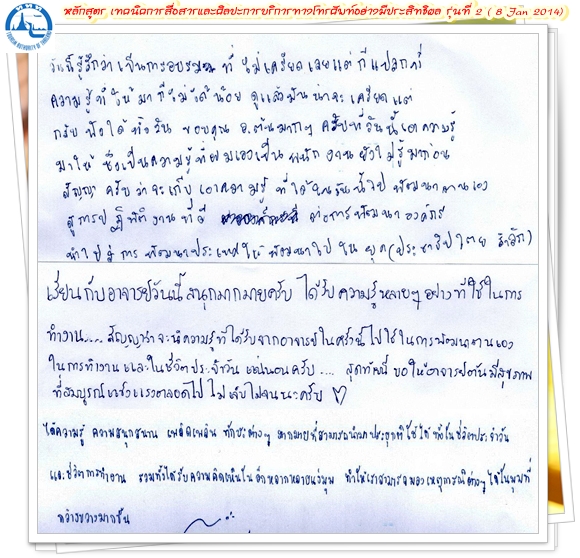 หลักสูตร เทคนิคการสื่อสารและศิลปะการบริการทางโทรศัพท์อย่างมีประสิทธิผล รุ่นที่ 2 ( 8 Jan 2014)
ททท
TOURISM AUTHORITY OF THAILAND
วันนี้รู้สึกว่าเป็นการอบรม ที่ไม่เครียดเลยแต่ก็แปลกที่
ความรู้ที่ให้มาก็ไม่ได้น้อย ดูแล้วมันน่าจะเครียดแต่
กลับฟังได้ทั้งวัน ขอบคุณ อ.ต้นมากๆ ครับที่วันนี้เอาความรู้
มาให้ ซึ่งเป็นความรู้ที่ผมเองเป็นพนักงานยังไม่รู้มาก่อน
สัญญาครับว่าจะเก็บเอาความรู้ที่ได้ในวันนี้ไปพัฒนาตนเอง
สู่การปฏิบัติงานที่ดี ต่อการพัฒนาองค์กร
นำไปสู่การพัฒนาประเทศให้พัฒนาไปในยุค (ประชาธิปไตย
เรียนกับอาจารย์วันนี้สนุกมากมายครับ ได้รับความรู้หลายๆ อย่างที่ใช้ในการ
ทำงาน.... สัญญาว่าจะนำความรู้ที่ได้รับจากอาจารย์ในครั้งนี้ไปใช้ในการพัฒนาตนเอง
ในการทำงานและในชีวิตประจำวัน แน่นอนครับ.... สุดท้ายนี้ ขอให้อาจารย์ต้นมีสุขภาพ
ที่สมบูรณ์แข็งแรงตลอดไป ไม่เจ็บไม่จนนะครับ
ได้ความรู้ ความสนุกสนาน เพลิดเพลิน ทักษะต่างๆ มากมายที่สามารถนำมาประยุกต์ใช้ได้ ทั้งในชีวิตประจำวัน
และชีวิตการทำงาน รวมทั้งได้รับความคิดเห็นในอีกหลากหลายแง่มุม ทำให้เราสามารถมองเหตุการณ์ต่างๆ ได้ในมุมที่
กว้างขวางมากขึ้น